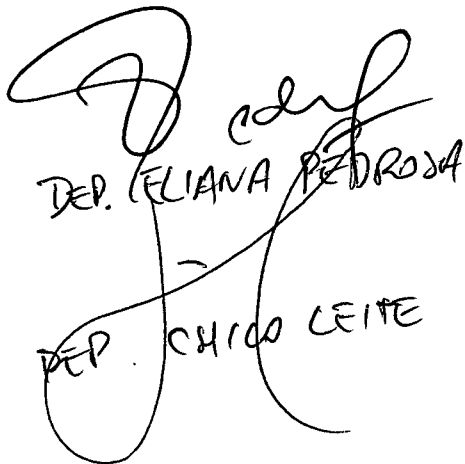 DEP. ELIANA PEDROSA
DEP. CHICO LEITE